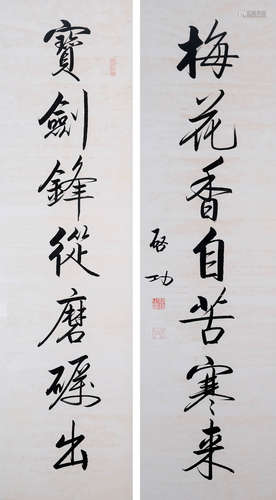 梅花香自苦寒来
啟功
寶劍鋒從磨礪出